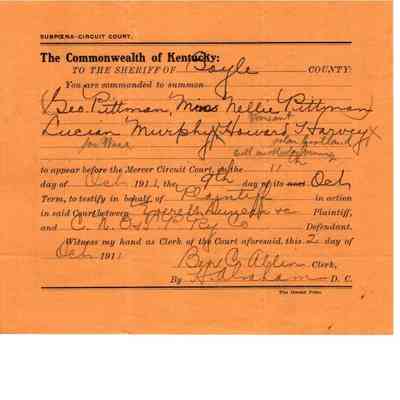 SUBPOENA-CIRCUIT COURT.
The Commonwealth of Kentucky:
TO THE SHERIFF OF Boyle COUNTY:
You are commanded to summon
Geo. Pittman, Nellie Pittman
Lucian Murphy x Howard Harvey x
to appear before the Mercer Circuit Court, on the 11
day of Oct 1911, the 9th day of its next Oct
Term, to testify in behalf of Plaintiff in action
in said Court between &c Plaintiff,
and C. N. O. & T. P. Ry Co Defendant.
Witness my hand as Clerk of the Court aforesaid, this 2 day of
Oct 1911 Ben C. Allin Clerk,
By Abraham D. C.
The Herald Print.